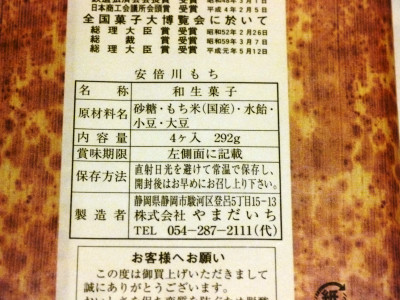 日本商工会議所会頭賞 受賞 平成4年2月5日
全国菓子大博覧会に於いて
総理大臣賞受賞 昭和52年2月26日
総裁賞受賞 昭和59年3月7日
総理大臣賞受賞 平成元年5月12日
安倍川もち
名称 和生菓子
原材料名 砂糖・もち米(国産)・水飴・
小豆・大豆
内容量 4ヶ入 292g
賞味期限 左側面に記載
保存方法 直射日光を避けて常温で保存し、
開封後はお早めにお召し上り下さい。
製造者 静岡県静岡市駿河区登呂5丁目15-13
株式会社 やまだいち
TEL 054-287-2111(代)
お客様へお願い
この度は御買上げいただきまして
誠にありがとうございます。
紙